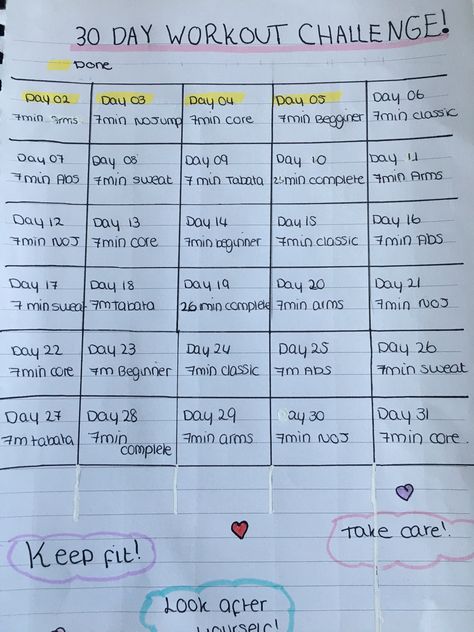 30 DAY WORKOUT CHALLENGE!
Done
Day 02
7min arms
Day 03
7min NOJump
Day 04
7min core
Day 05
7min Begginer
Day 06
7min classic
Day 07
7min Abs
Day 08
7min sweat
Day 09
7min Tabata
Day 10
min complete
Day 11
7min Arms
Day 12
7min NOJ
Day 13
7min core
Day 14
7min beginner
Day 15
7min classic
Day 16
7min ABS
Day 17
7min sweat
Day 18
7m tabata
Day 19
26 min complete
Day 20
7min arms
Day 21
7min NOJ
Day 22
7min core
Day 23
7m Beginner
Day 24
7min classic
Day 25
7m ABS
Day 26
7min sweat
Day 27
7m tabata
Day 28
7min
complete
Day 29
7min arms
Day 30
7min NOJ
Day 31
7min core
Take care!
Keep fit!
Look after
yourself!